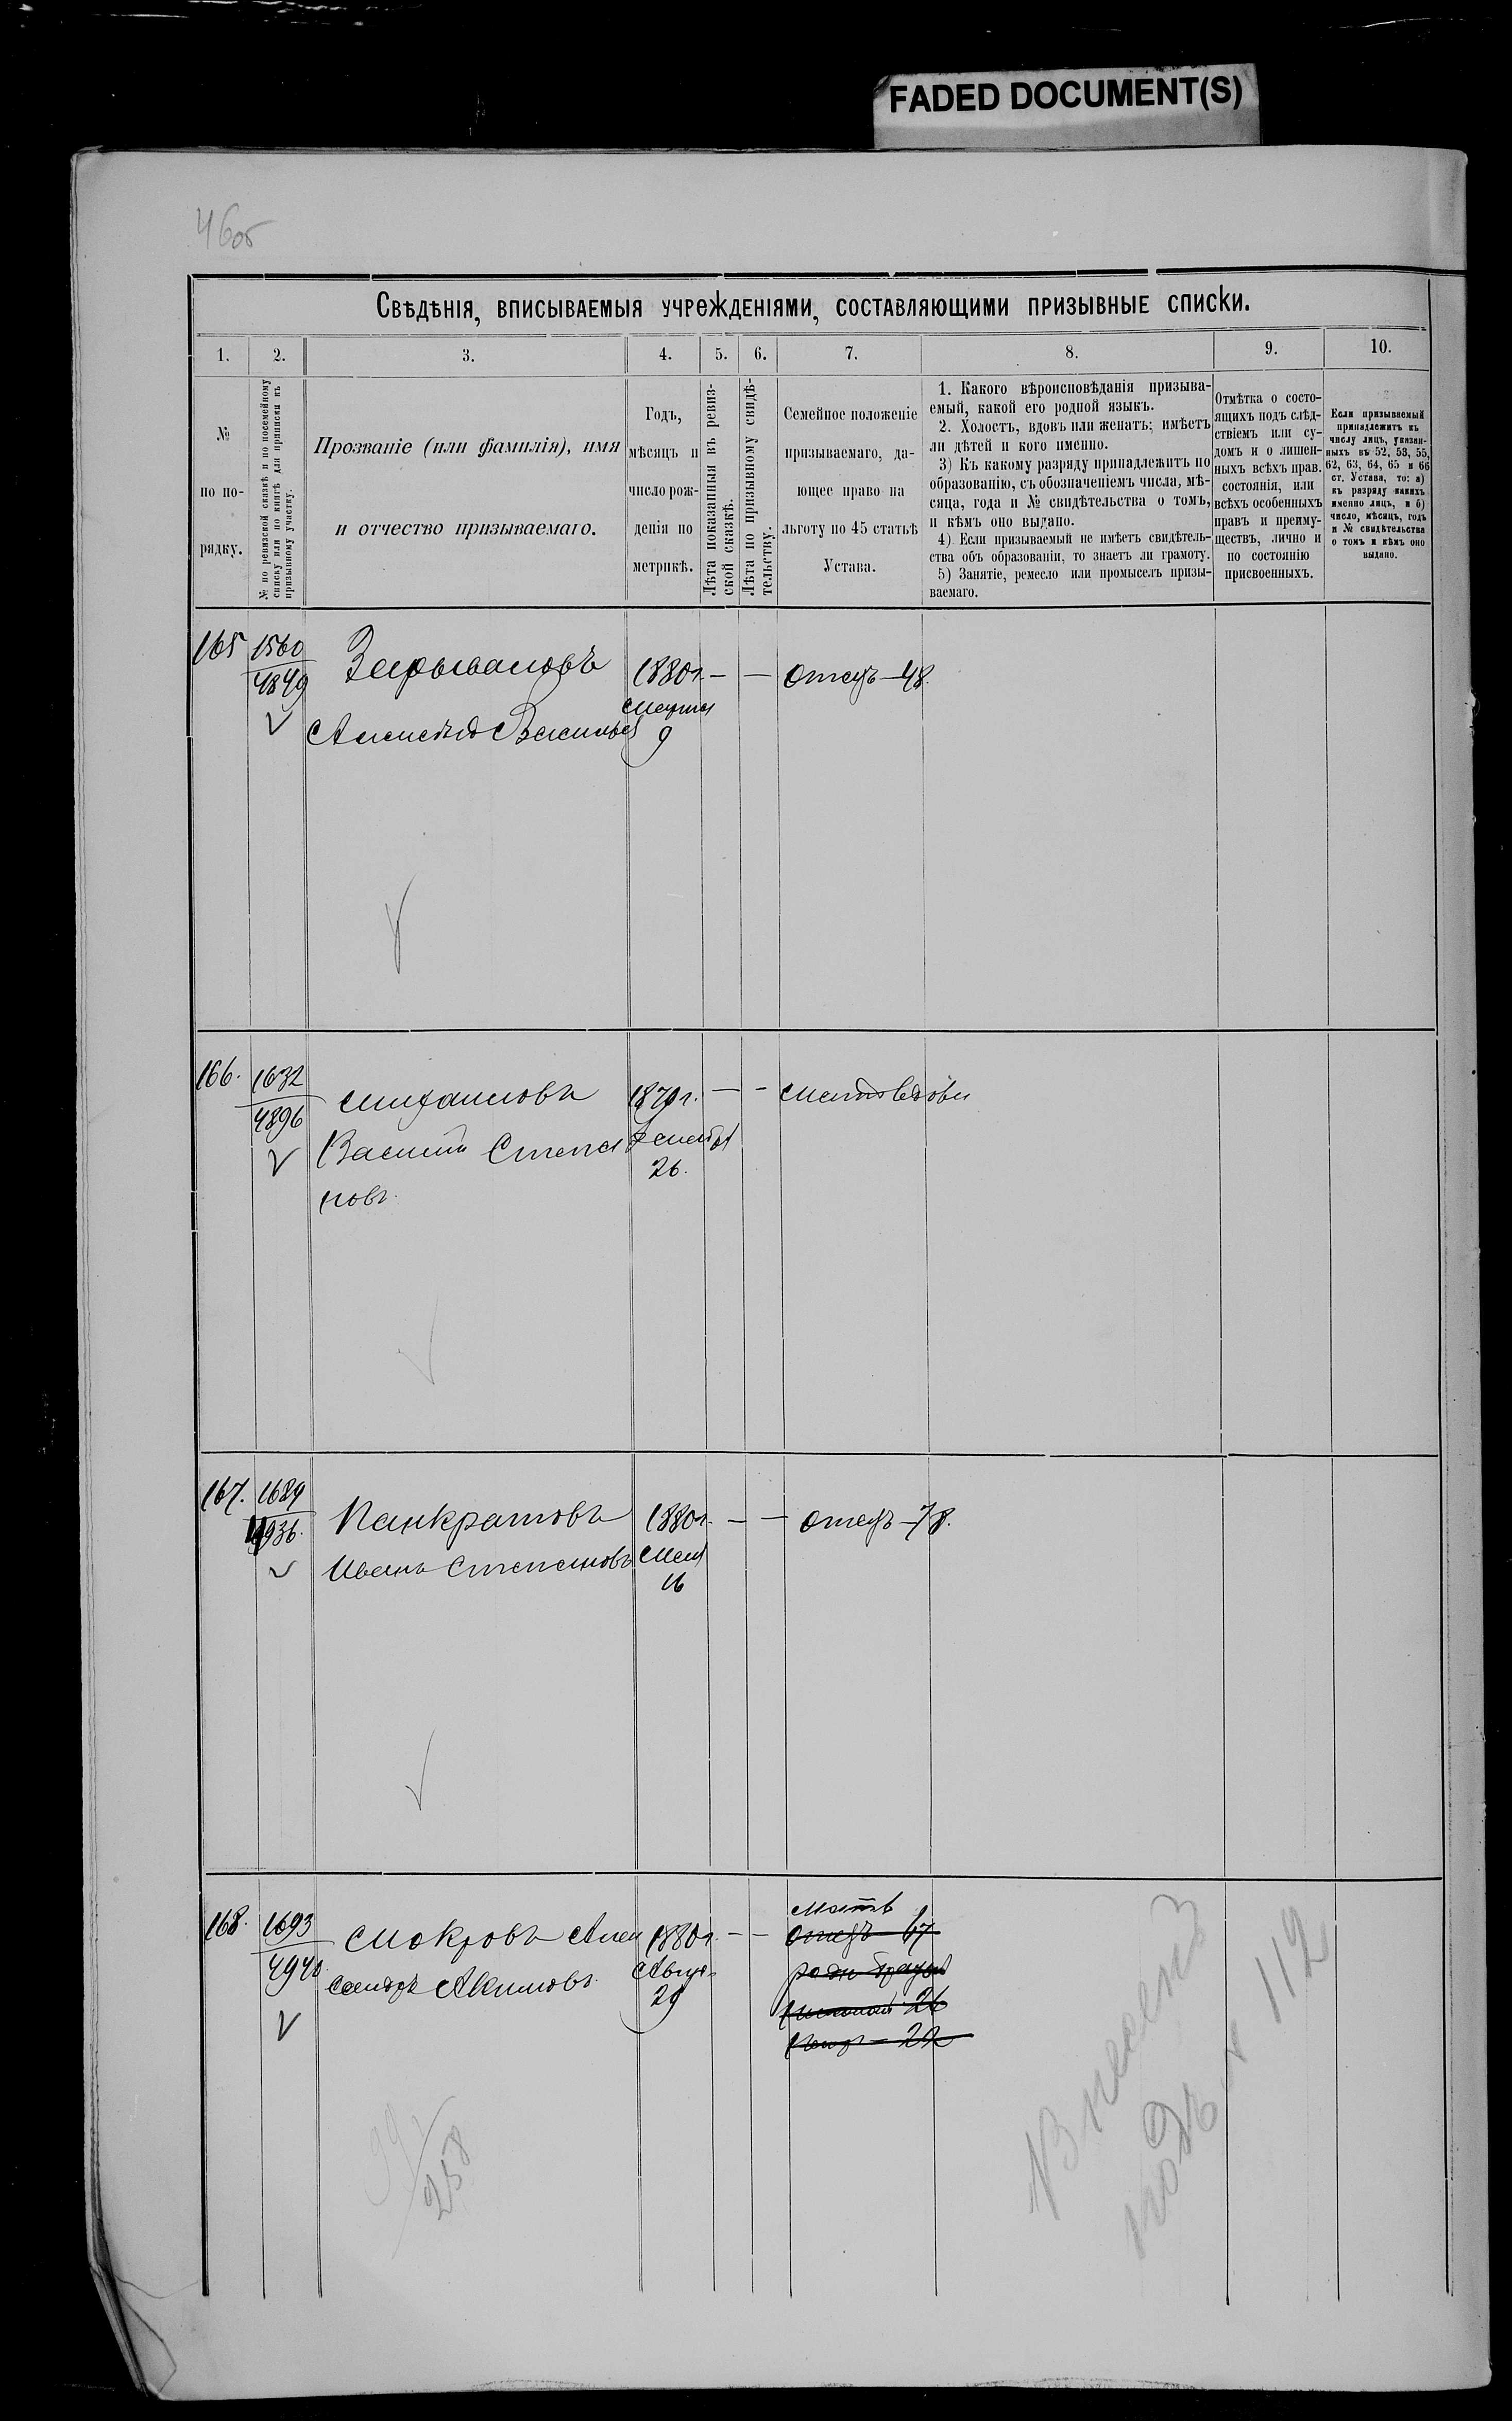 FADED DOCUMENT(S)
46об
Свѣдѣнія, вписываемыя учрежденіями, составляющими призывные списки.
1. 2. 3. 4. 5. 6. 7. 8. 9. 10.
№
по по-
рядку.
№ по ревизской сказкѣ и по посемейному
списку или по книгѣ для приписки къ
призывному участку.
Прозваніе (или фамилія), имя
и отчество призываемаго.
Годъ,
мѣсяцъ и
число рож-
денія по
метрикѣ.
Лѣта показанныя въ ревиз-
ской сказкѣ.
Лѣта по призывному свидѣ-
тельству.
Семейное положеніе
призываемаго, да-
ющее право на
льготу по 45 статьѣ
Устава.
1. Какого вѣроисповѣданія призыва-
емый, какой его родной языкъ.
2. Холостъ, вдовъ или женатъ; имѣетъ
ли дѣтей и кого именно.
3) Къ какому разряду принадлежитъ по
образованію, съ обозначеніемъ числа, мѣ-
сяца, года и № свидѣтельства о томъ,
и кѣмъ оно выдано.
4) Если призываемый не имѣетъ свидѣтель-
ства объ образованіи, то знаетъ ли грамоту.
5) Занятіе, ремесло или промыселъ призы-
ваемаго.
Отмѣтка о состо-
ящихъ подъ слѣд-
ствіемъ или су-
домъ и о лишен-
ныхъ всѣхъ прав.
состоянія, или
всѣхъ особенныхъ
правъ и преиму-
ществъ, лично и
по состоянію
присвоенныхъ.
Если призываемый
принадлежитъ къ
числу лицъ, указан-
ныхъ въ 52, 53, 55,
62, 63, 64, 65 и 66
ст. Устава, то: а)
къ разряду какихъ
именно лицъ, и б)
число, мѣсяцъ, годъ
и № свидѣтельства
о томъ и кѣмъ оно
выдано.
165 1560 1880г. — — Отецъ—48.
4849
Марта
Алексѣй Васильев 9
166. 1632 Михаиловъ 1879г. — — Мать вдова
4896
Василій Степа Декабря
новъ. 26.
167. 1689 Панкратовъ 1880г. — — Отецъ—78.
4936.
Иванъ Степановъ Мая
16
Мать
168. 1693 Мокровъ Алек 1880г. — — Отецъ 67
4940
сандръ Акимовъ. Авгус. родн братья
29 26
Петр — 22
Внесенъ
подъ № 112
258